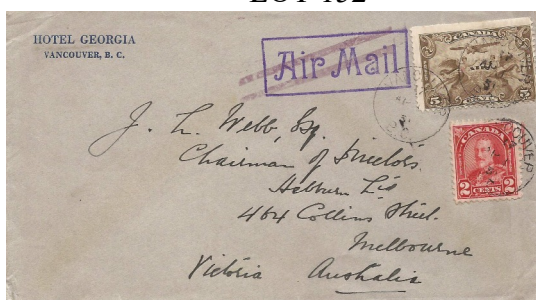 LOT 132
HOTEL GEORGIA
VANCOUVER, B. C.
Air Mail
CANADA
5 CENTS 5
COUVER
CANADA
2 CENTS 2
J. L. Webb, Esq.
Chairman of Directors.
Hepburn Ltd
464 Collins Street.
Melbourne
Victoria Australia